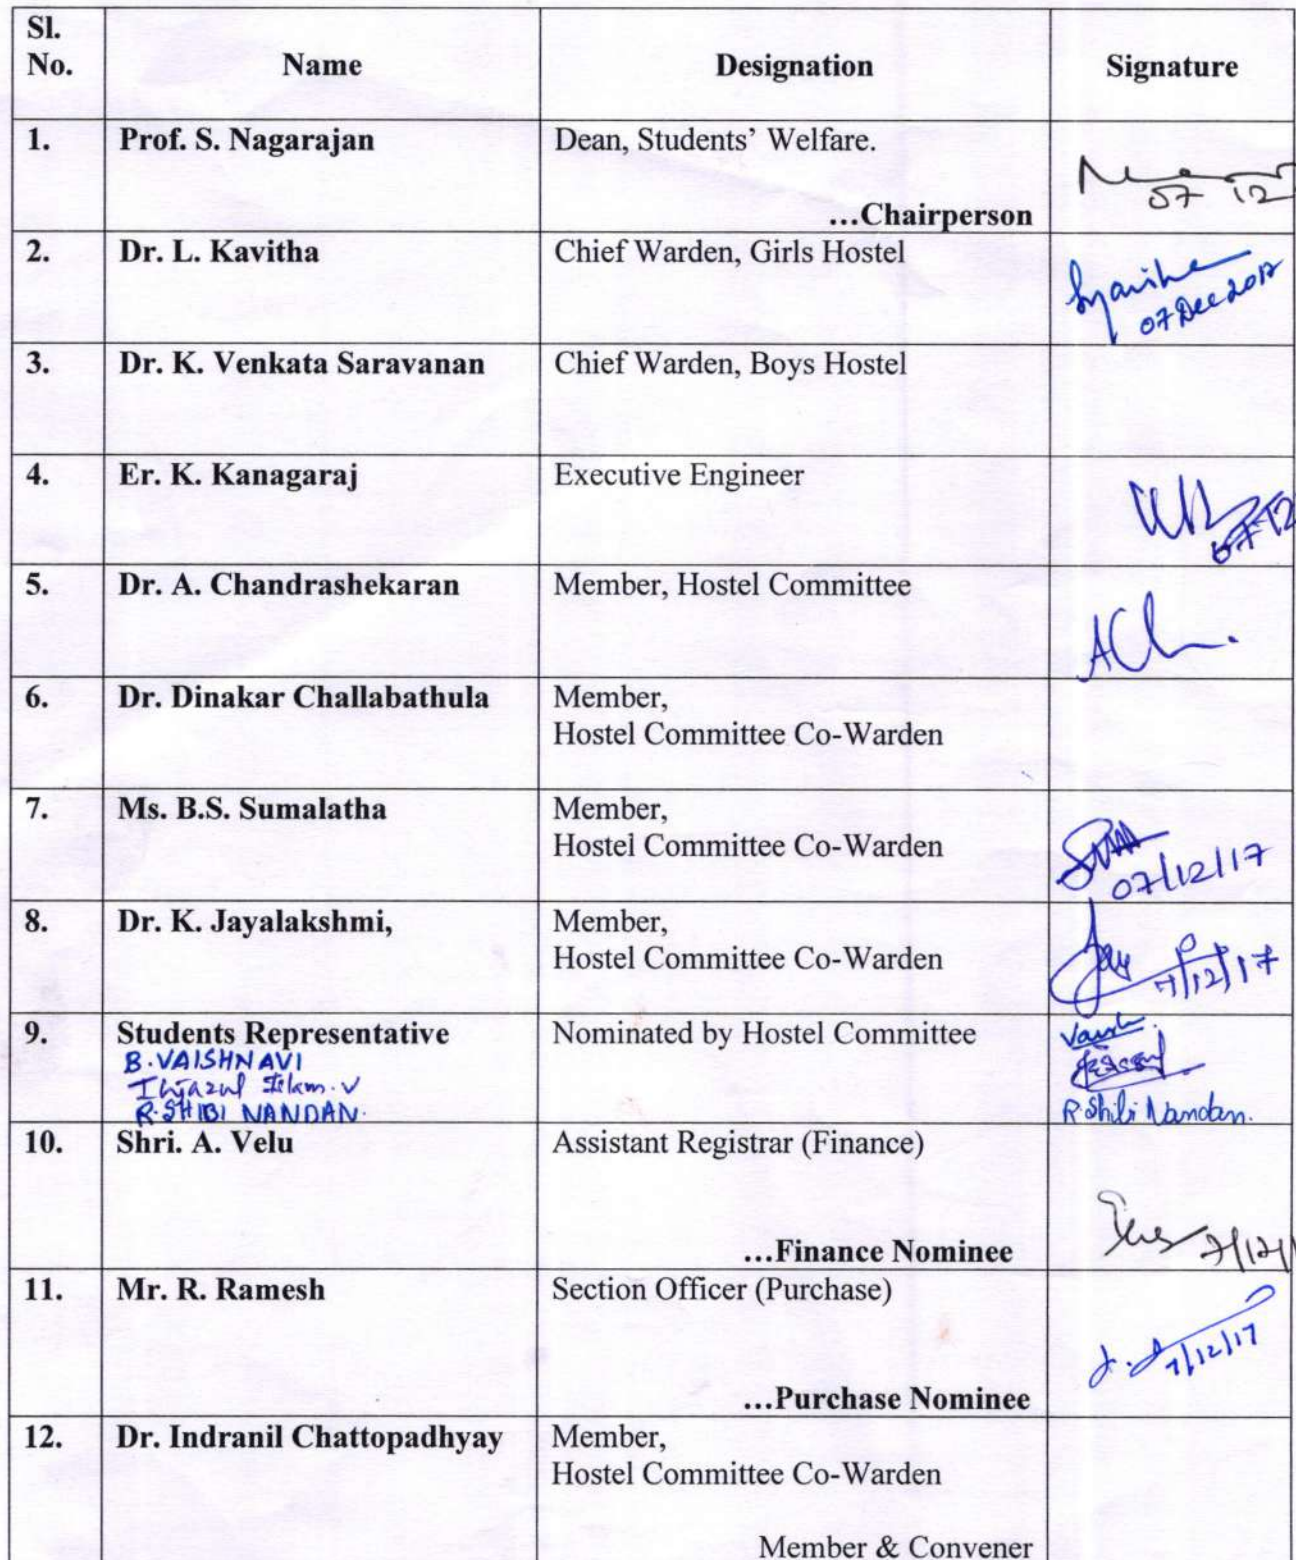 Sl.
No.
Name
Designation
Signature
1.
Prof. S. Nagarajan
Dean, Students' Welfare.
...Chairperson
07 12
2.
Dr. L. Kavitha
Chief Warden, Girls Hostel
07 Dec 2017
3.
Dr. K. Venkata Saravanan
Chief Warden, Boys Hostel
4.
Er. K. Kanagaraj
Executive Engineer
07 12
5.
Dr. A. Chandrashekaran
Member, Hostel Committee
6.
Dr. Dinakar Challabathula
Member,
Hostel Committee Co-Warden
7.
Ms. B.S. Sumalatha
Member,
Hostel Committee Co-Warden
07/12/17
8.
Dr. K. Jayalakshmi,
Member,
Hostel Committee Co-Warden
7/12/17
9.
Students Representative
B. VAISHNAVI
Islam. V
R. SHIBI NANDAN.
Nominated by Hostel Committee
R. Shibi Nandan.
10.
Shri. A. Velu
Assistant Registrar (Finance)
...Finance Nominee
7/12/1
11.
Mr. R. Ramesh
Section Officer (Purchase)
...Purchase Nominee
7/12/17
12.
Dr. Indranil Chattopadhyay
Member,
Hostel Committee Co-Warden
Member & Convener